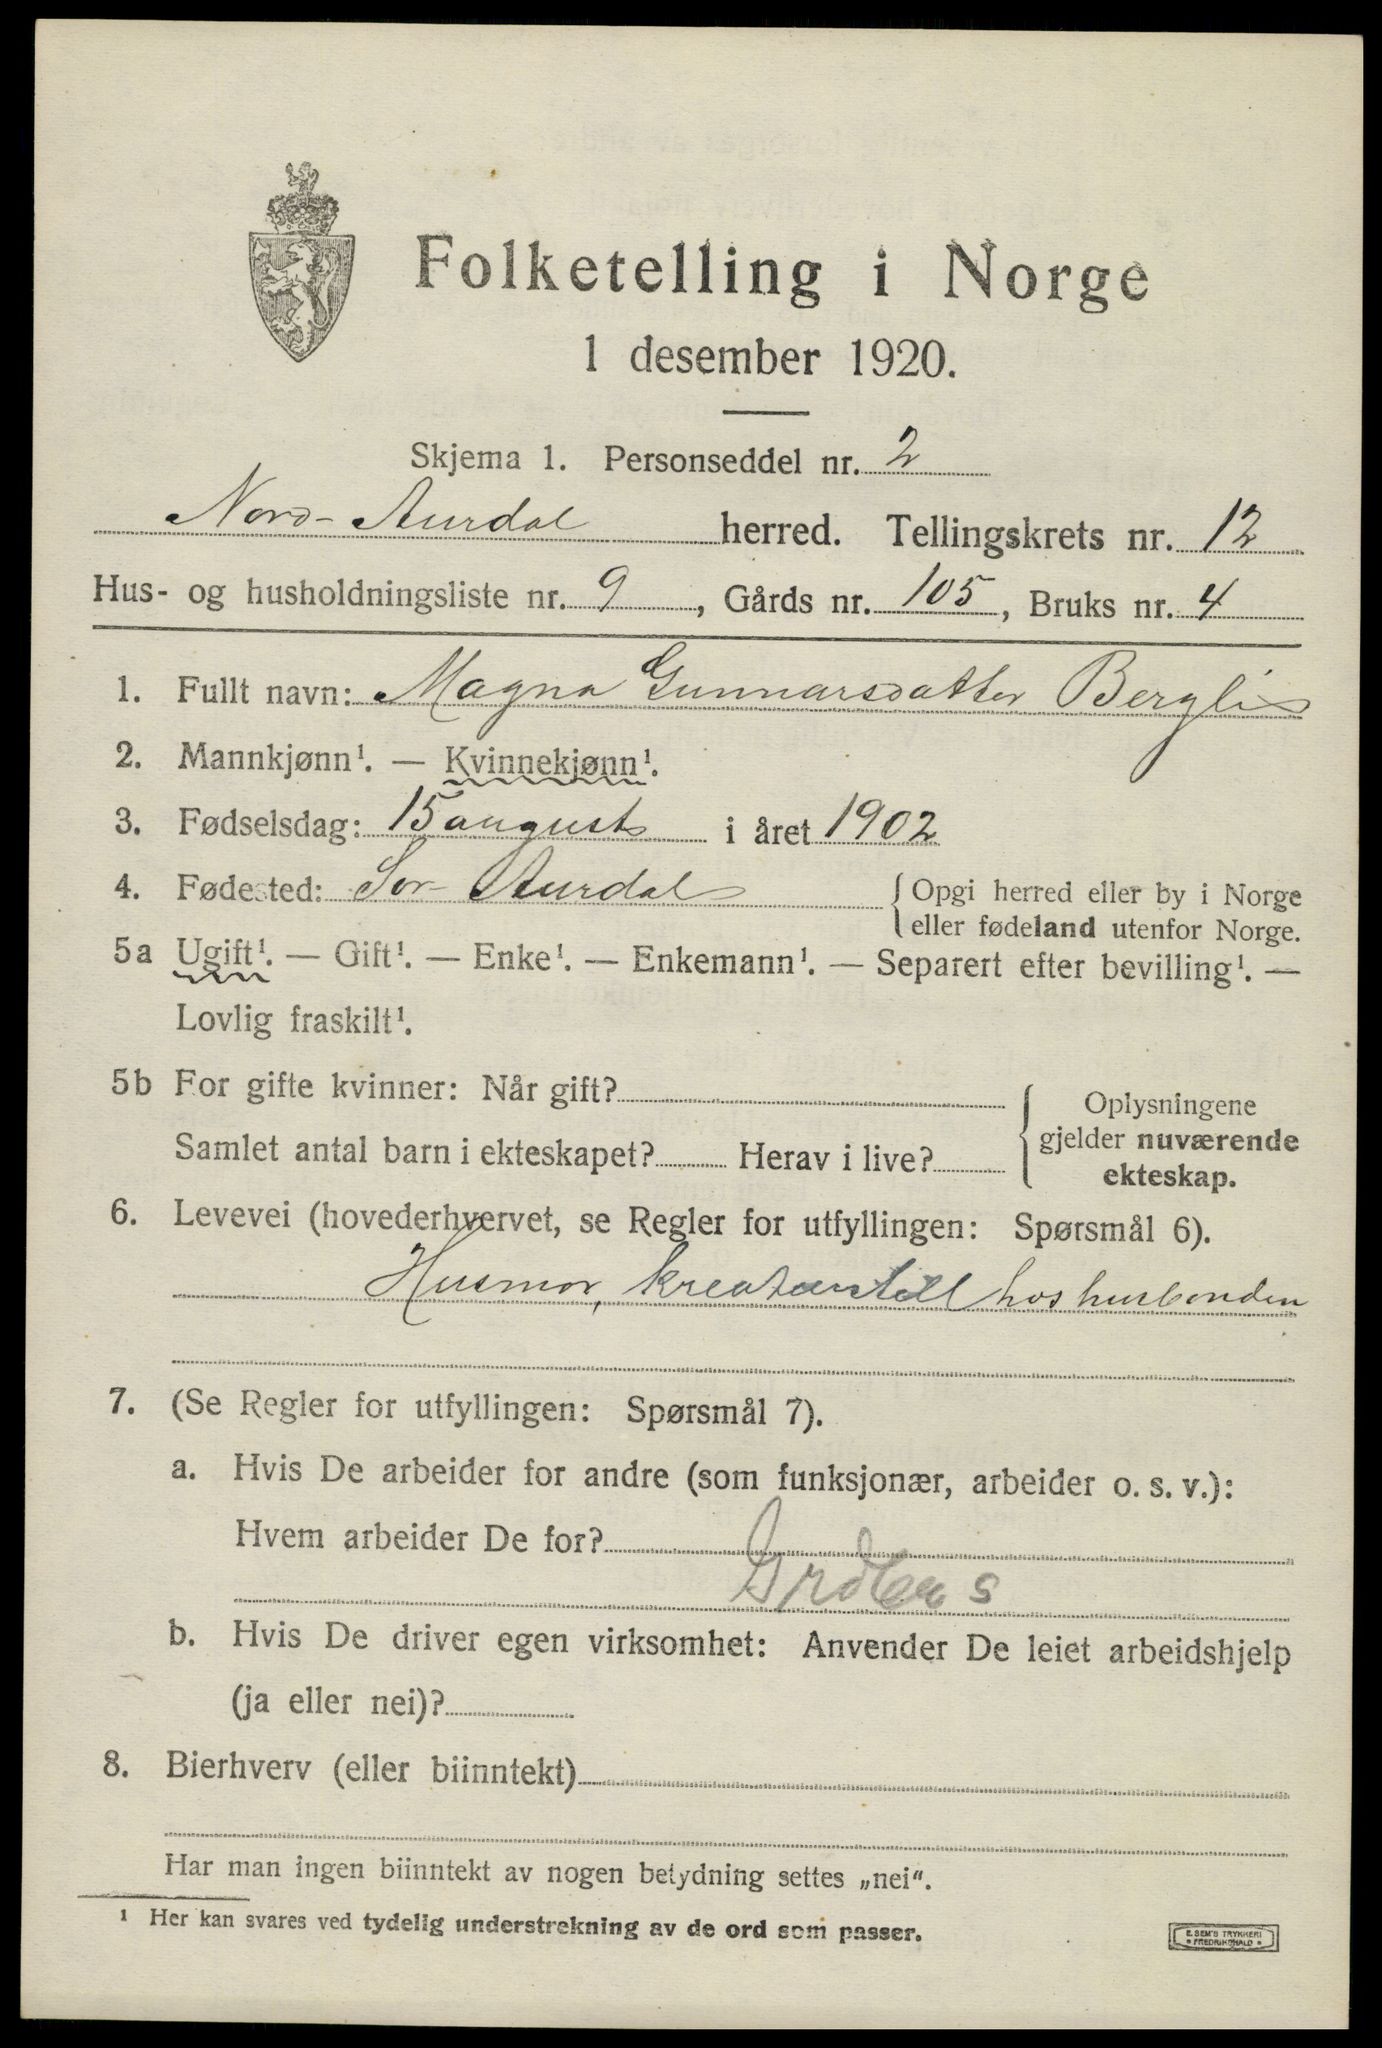 Folketelling i Norge
1 desember 1920.
Skjema 1. Personseddel nr. 2
Nord-Aurdal herred. Tellingskrets nr. 12
Hus- og husholdningsliste nr. 9, Gårds nr. 105, Bruks nr. 4
1. Fullt navn: Magna Gunnarsdatter Bergli
2. Mannkjønn¹. — Kvinnekjønn¹.
3. Fødselsdag: 15 august i året 1902
4. Fødested: Sør-Aurdal { Opgi herred eller by i Norge
eller fødeland utenfor Norge.
5a Ugift¹. — Gift¹. — Enke¹. — Enkemann¹. — Separert efter bevilling¹. —
Lovlig fraskilt¹.
5b For gifte kvinner: Når gift?
Samlet antal barn i ekteskapet? Herav i live?
Oplysningene
gjelder nuværende
ekteskap.
6. Levevei (hovederhvervet, se Regler for utfyllingen: Spørsmål 6).
Husmor, kreaturstell hos husbonden
7. (Se Regler for utfyllingen: Spørsmål 7).
a. Hvis De arbeider for andre (som funksjonær, arbeider o. s. v.):
Hvem arbeider De for?
b. Hvis De driver egen virksomhet: Anvender De leiet arbeidshjelp
(ja eller nei)?
8. Bierhverv (eller biinntekt)
Har man ingen biinntekt av nogen betydning settes „nei“.
¹ Her kan svares ved tydelig understrekning av de ord som passer.
E. SEM'S TRYKKERI
FREDRIKSHALD